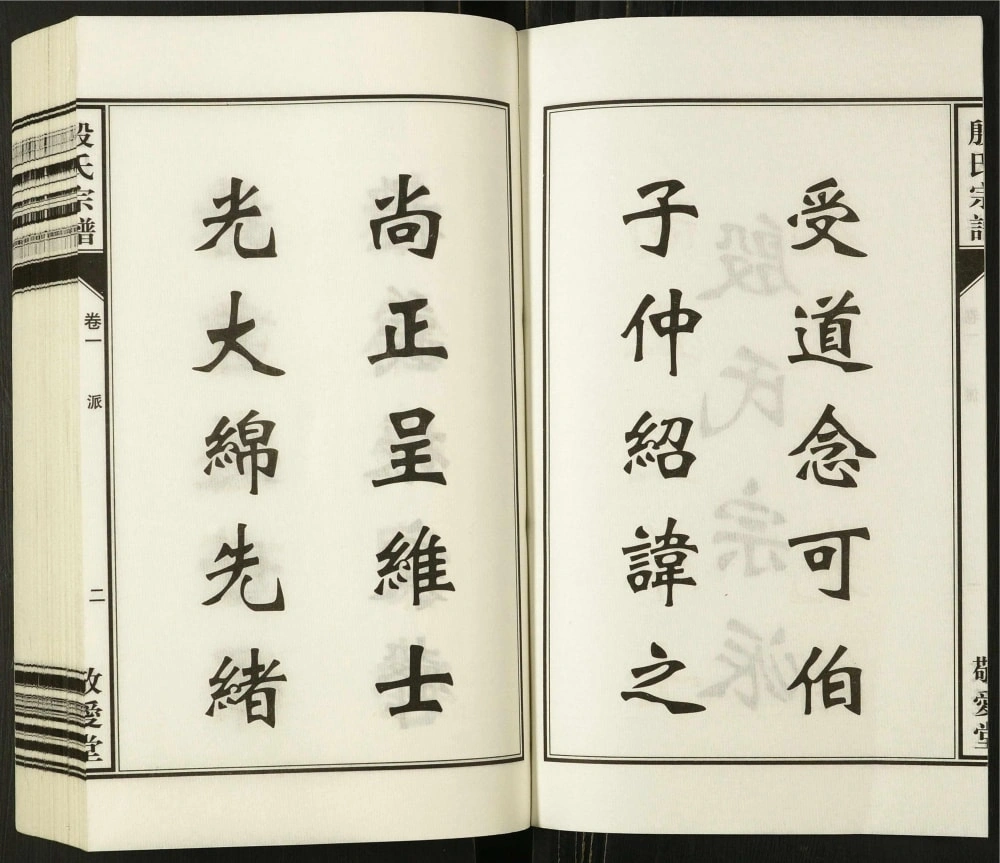 殷氏宗譜
敬愛堂
受道念可伯
子仲紹諱之
尚正呈維士
光大綿先緒
殷氏宗譜
卷一
派
二
敬愛堂